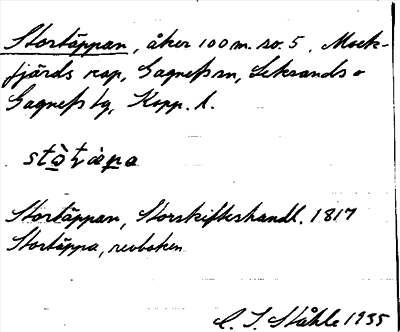 Stortäppan, åker 100 m. so. 5, Mock-
fjärds kap, Gagnefs sn, Leksands o
Gagnefs tg, Kopp. l.
stò̠tväp̠a
Stortäppan, Storskifteshandl. 1817
Stortäppa, revboken
C. I. Ståhle 1935